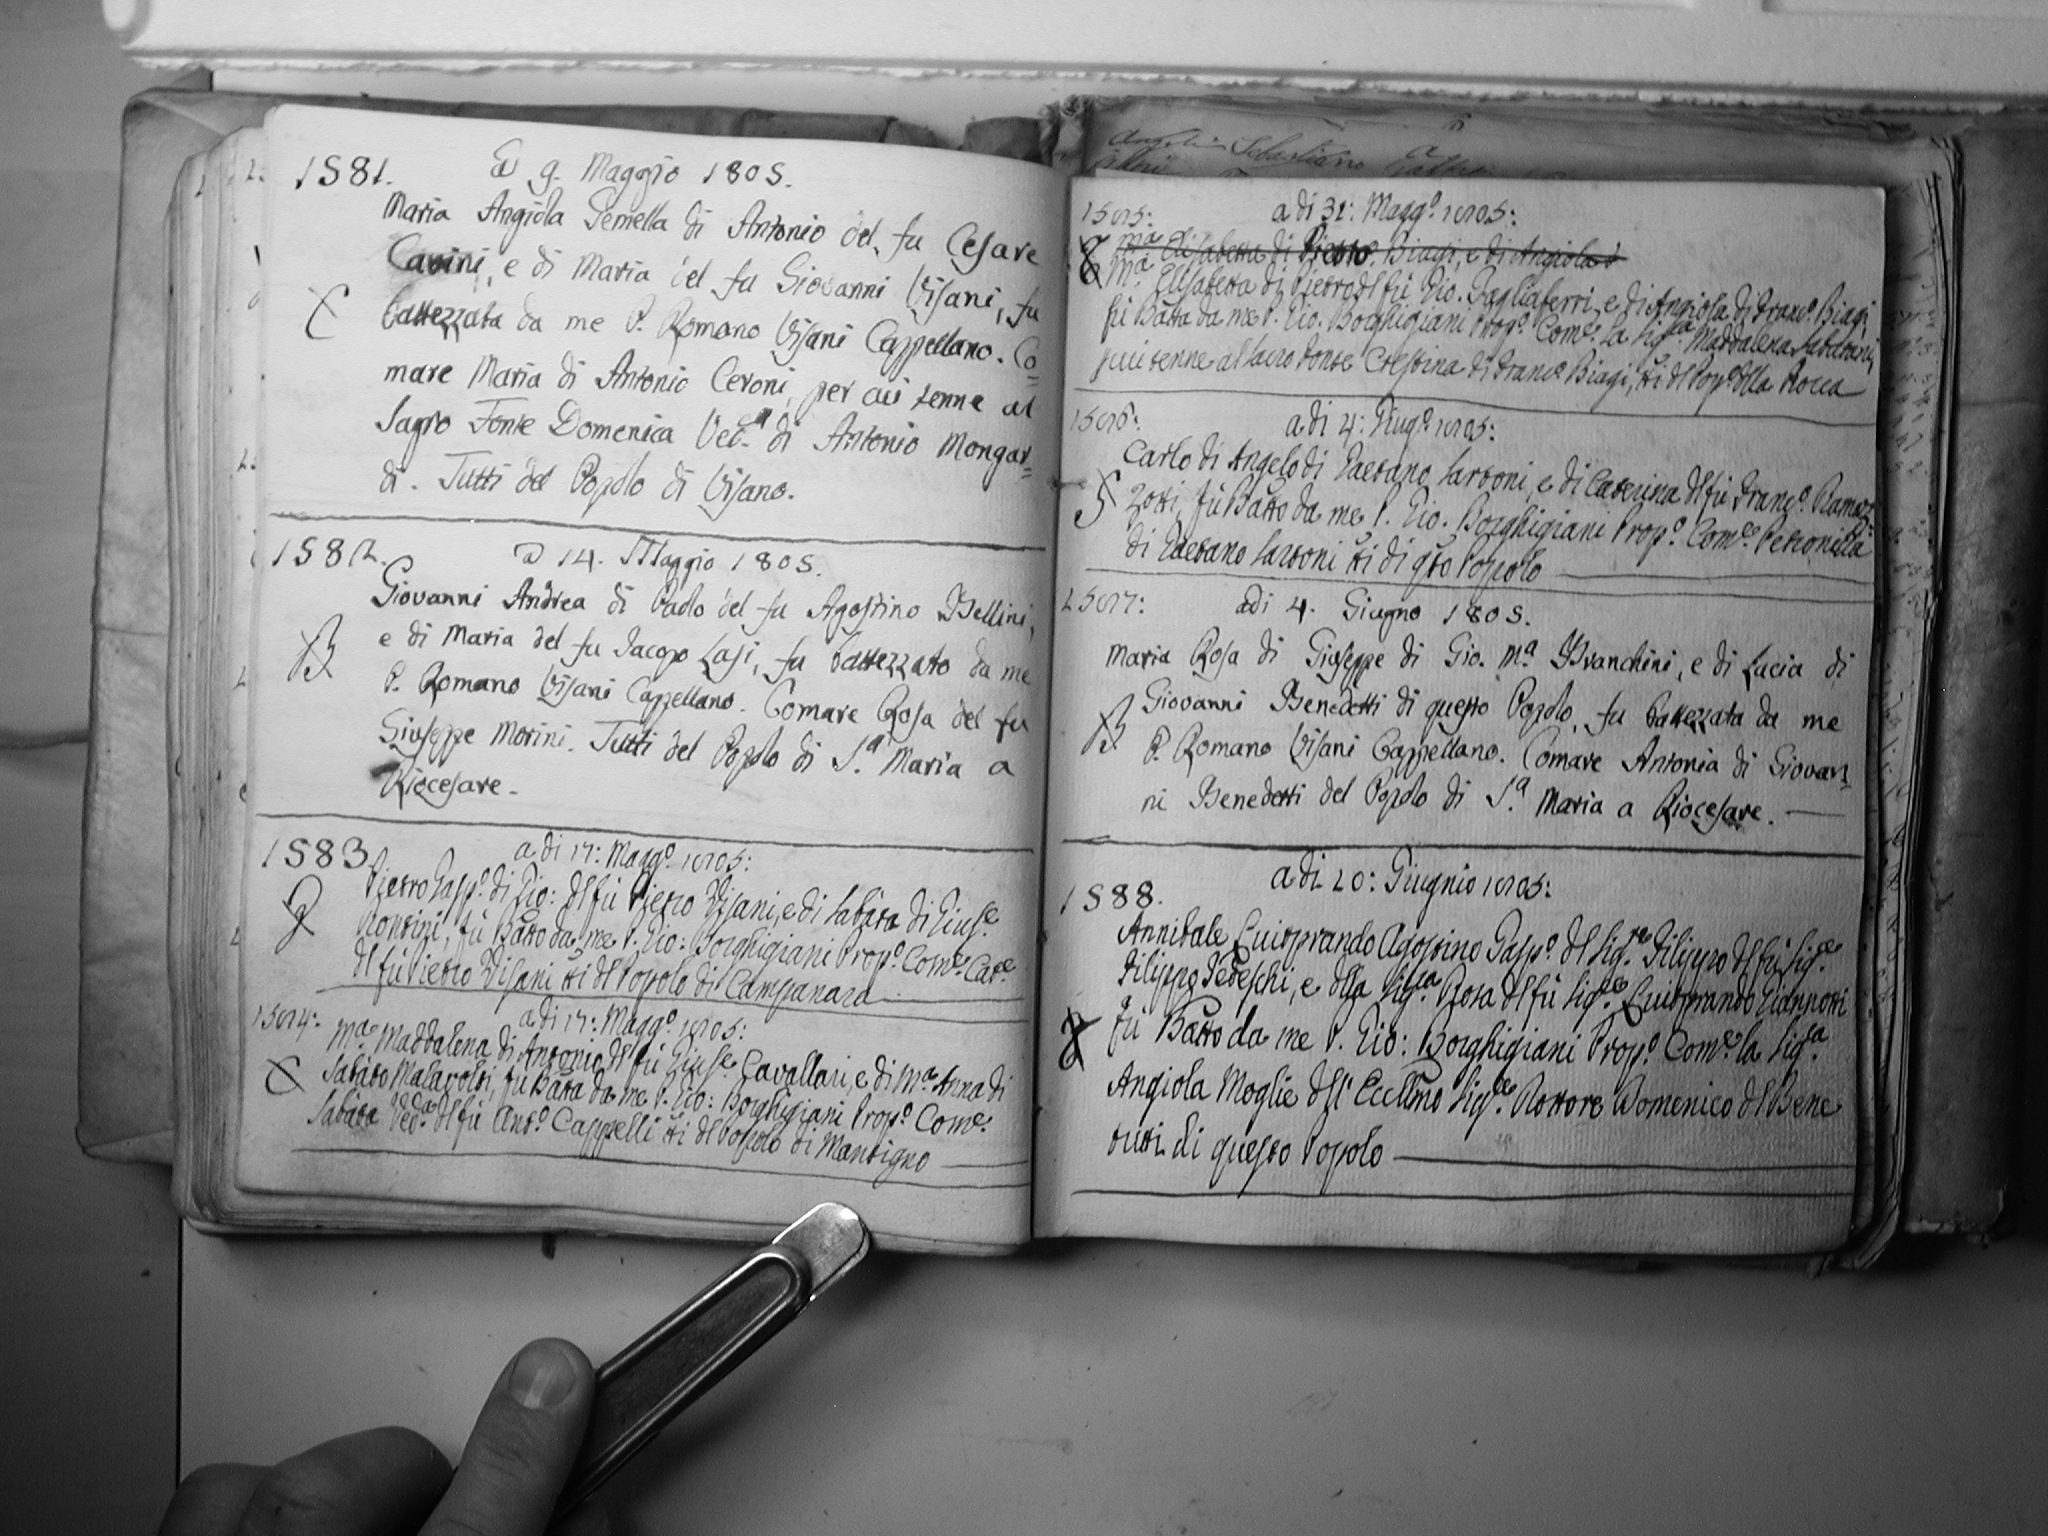 1581. A 9. Maggio 1805.
Maria Angiola Gemella di Antonio del fu Cesare
Cavini, e di Maria del fu Giovanni Visani, fu
battezzata da me P. Romano Visani Cappellano. Co=
mare Maria di Antonio Ceroni, per cui tenne al
Sagro Fonte Domenica Ved.ª di Antonio Mongar=
di. Tutti del Popolo di Visano.
C
1582. A 14. Maggio 1805.
Giovanni Andrea di Paolo del fu Agostino Bellini,
e di Maria del fu Jacopo Lasi, fu battezzato da me
P. Romano Visani Cappellano. Comare Rosa del fu
Giuseppe Morini. Tutti del Popolo di S.ª Maria a
Riocesare.
B
1583. a di 17: Magg.º 1805:
Pietro Gasp.º di Gio: del fu Pietro Visani, e di Sabata di Gius.e
fù Batto da me P. Gio: Borghigiani Prop.º Com.e Cat.e
del fù Pietro Visani tti del Popolo di Campanara
1584: a di 17: Magg.º 1805:
M.a Maddalena di Antonio del fù Gius.e Cavallari, e di M.a Anna di
Sabato Malavolti, fù Batta da me P. Gio: Borghigiani Prop.º Com.e
Sabata Ved.a del fù Ant.º Cappelli tti del Popolo di Mantigno
C
1585: a di 31: Magg.º 1805:
M.a Elisabetta di Pietro Biagi, e di Angiola d
M.a Elisabetta di Pietro del fù Gio. Tagliaferri, e di Angiola di Franc.º Biagi,
fù Batta da me P. Gio. Borghigiani Prop.º Com.e la Sig.ra Maddalena
tenne al sacro fonte Cristina di Franc.º Biagi, tti del Pop.º della Rocca
1586: a di 4: Giug.º 1805:
Carlo di Angelo di Gaetano Sartoni, e di Caterina del fù Franc.º Ramaz=
zotti, fù Batto da me P. Gio. Borghigiani Prop.º Com.e Petronilla
di Gaetano Sartoni tti di qsto Popolo
S
1587: adi 4. Giugno 1805.
Maria Rosa di Giuseppe di Gio. M.ª Branchini, e di Lucia di
Giovanni Benedetti di questo Popolo, fu battezzata da me
P. Romano Visani Cappellano. Comare Antonia di Giovan=
ni Benedetti del Popolo di S.ª Maria a Riocesare.
B
1588. a di 20: Giugnio 1805:
Annibale Luitprando Agostino Gasp.º del Sig.re Filippo del fù Sig.re
Filippo Tedeschi, e della Sig.ra Rosa del fù Sig.re Luitprando Giannotti
fù Batto da me P. Gio: Borghigiani Prop.º Com.e la Sig.ra
Angiola Moglie dell' Eccllmo Sig.re Dottore Domenico del Bene
tutti di questo Popolo